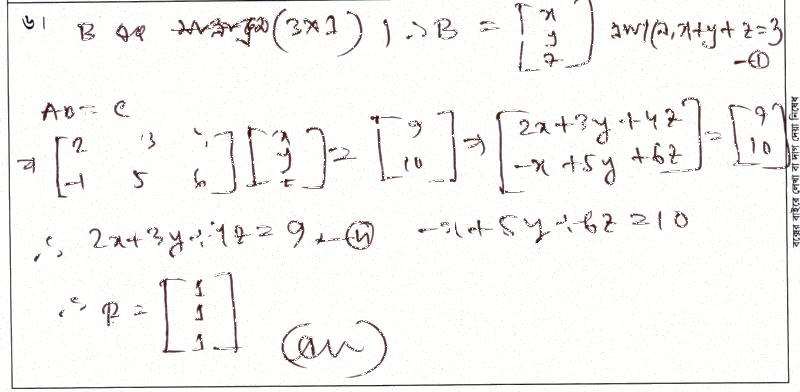 ৬। B এর (3×1) | ∴ B = [x y z] x+y+z=3 -①
AB = C
বা [2 3 4 -1 5 6] [x y z] = [9 10] ⇒ [2x+3y+4z -x+5y+6z] = [9 10]
∴ 2x+3y+4z=9 -⑪ -x+5y+6z=10
∴ B = [1 1 1] (an)
বক্সের বাইরে লেখা বা দাগ দেয়া নিষেধ